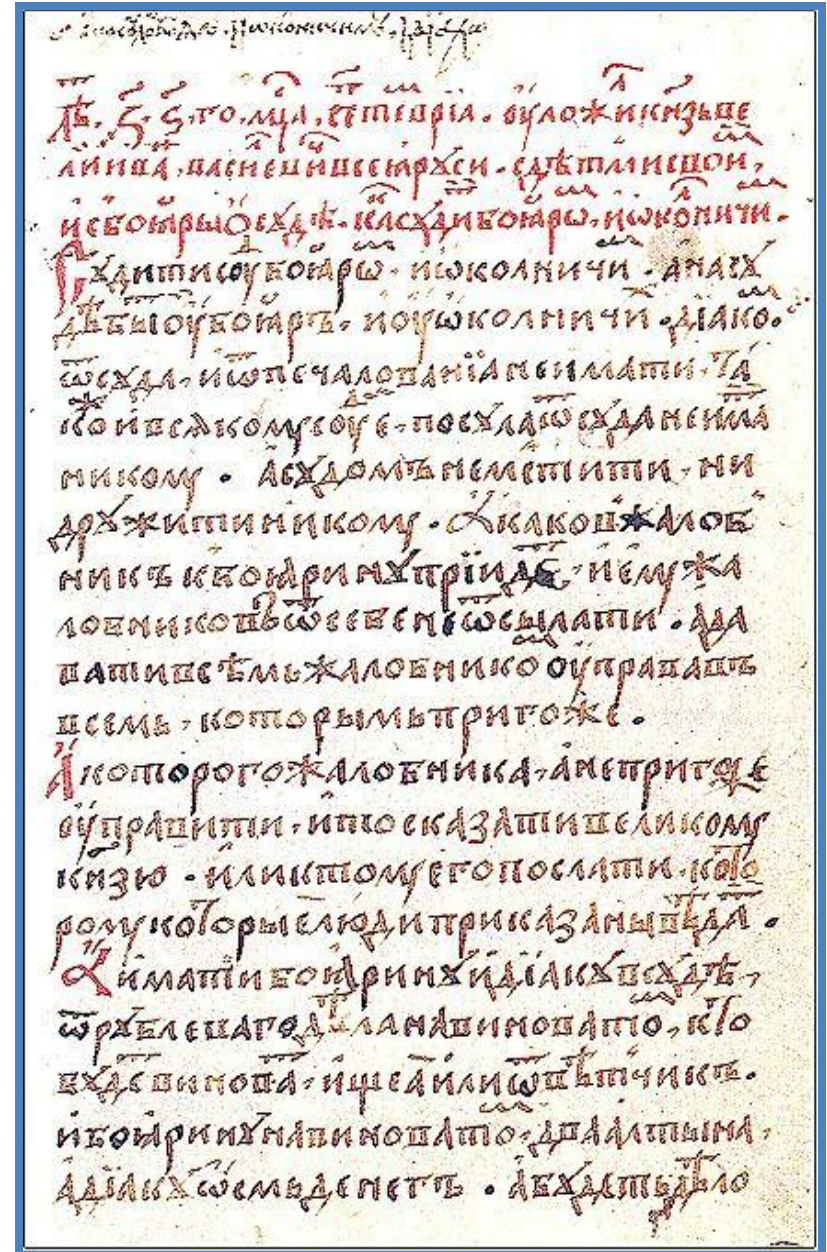 лѣ҃та ҂зз҃ го, мцⷭ҇а, септеврїа. оуложи кн҃зь ве
лікиі іва, васиевич всеа рꙋси. с дѣтми свои,
и с боары ѡ сꙋдѣ. ка сꙋди боаро, и ѡконичи.
Сꙋдити сꙋ боаро, и ѡколничи. а на сꙋ
дѣ бы оу боаръ, и оу ѡколничи дїако.
ѿ сꙋда, и ѿ печалованїа не имати. та
ко и всѧкомꙋ сꙋе. посꙋла ѿ сꙋда не има
никомꙋ. а сꙋдомъ не мстити, ни
дрꙋжити никомꙋ. а каков жалоб
никъ к боаринꙋ прїиде, и емꙋ жа
лобниковъ ѿ себе не ѿсылати. а да
вати всѣмь жалобнико оуправа въ
всемь, которымь пригоже.
А которого жалобника, а не пригоже
оуправити, и то сказати великомꙋ
кн҃зю. или к томꙋ его послати, кото
ромꙋ которые люди приказаны вѣда.
А имати боаринꙋ и дїакꙋ в сꙋдѣ,
ѿ рꙋблева го дѣла на виновато, кто
бꙋде винова, ищеа или ѿвѣтчикъ.
и боаринꙋ на виновато, два алтына,
а дїакꙋ ѡсмь денегъ. а бꙋдеть дѣло